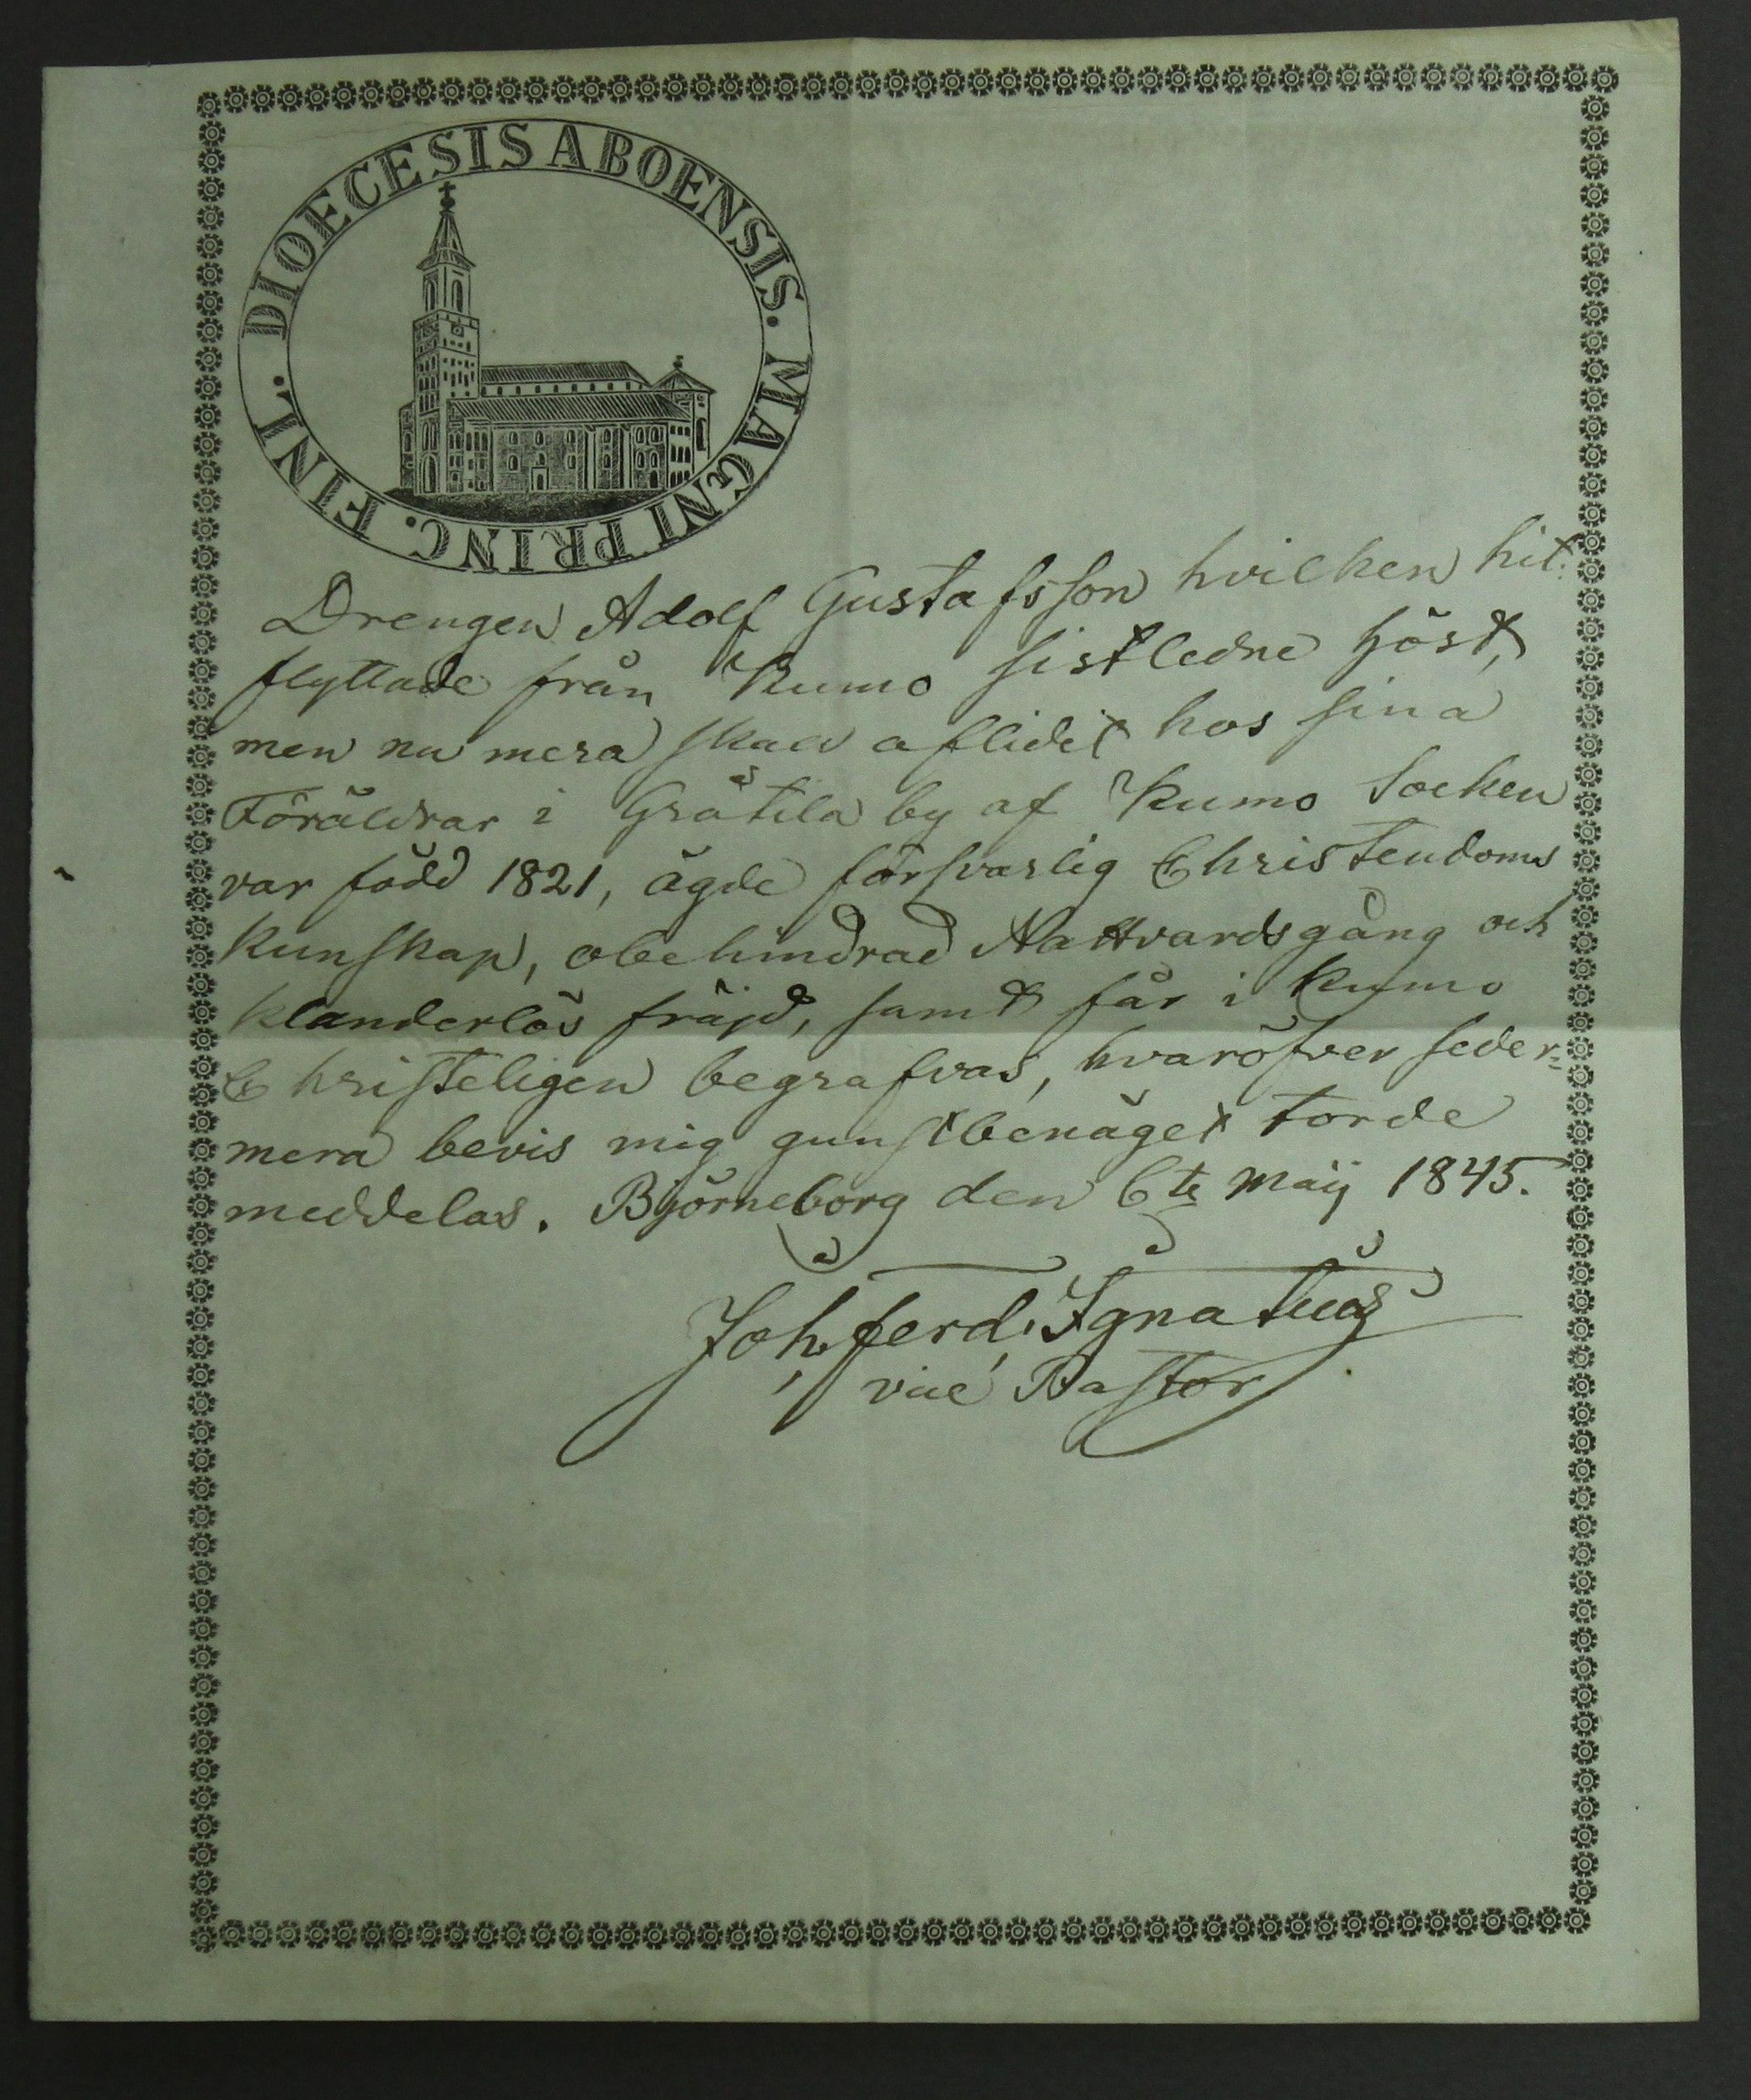 DIOECESIS ABOENSIS. MAGNI PRINC. FINL.
Drengen Adolf Gustafsson hvilken hit-
flyttade från Kumo sistledne höst,
men nu mera skall aflidit hos sina
Föräldrar i Gråtila by af Kumo Socken
var född 1821, ägde försvarlig Christendoms
kunskap, obehindrad Nattvardsgång och
klanderlös fräjd, samt får i Kumo
Christeligen begrafvas, hvaröfver seder-
mera bevis mig gunstbenäget torde
meddelas. Björneborg den 6te Maij 1845.
Joh. Ferd. Ignatius
vice Pastor